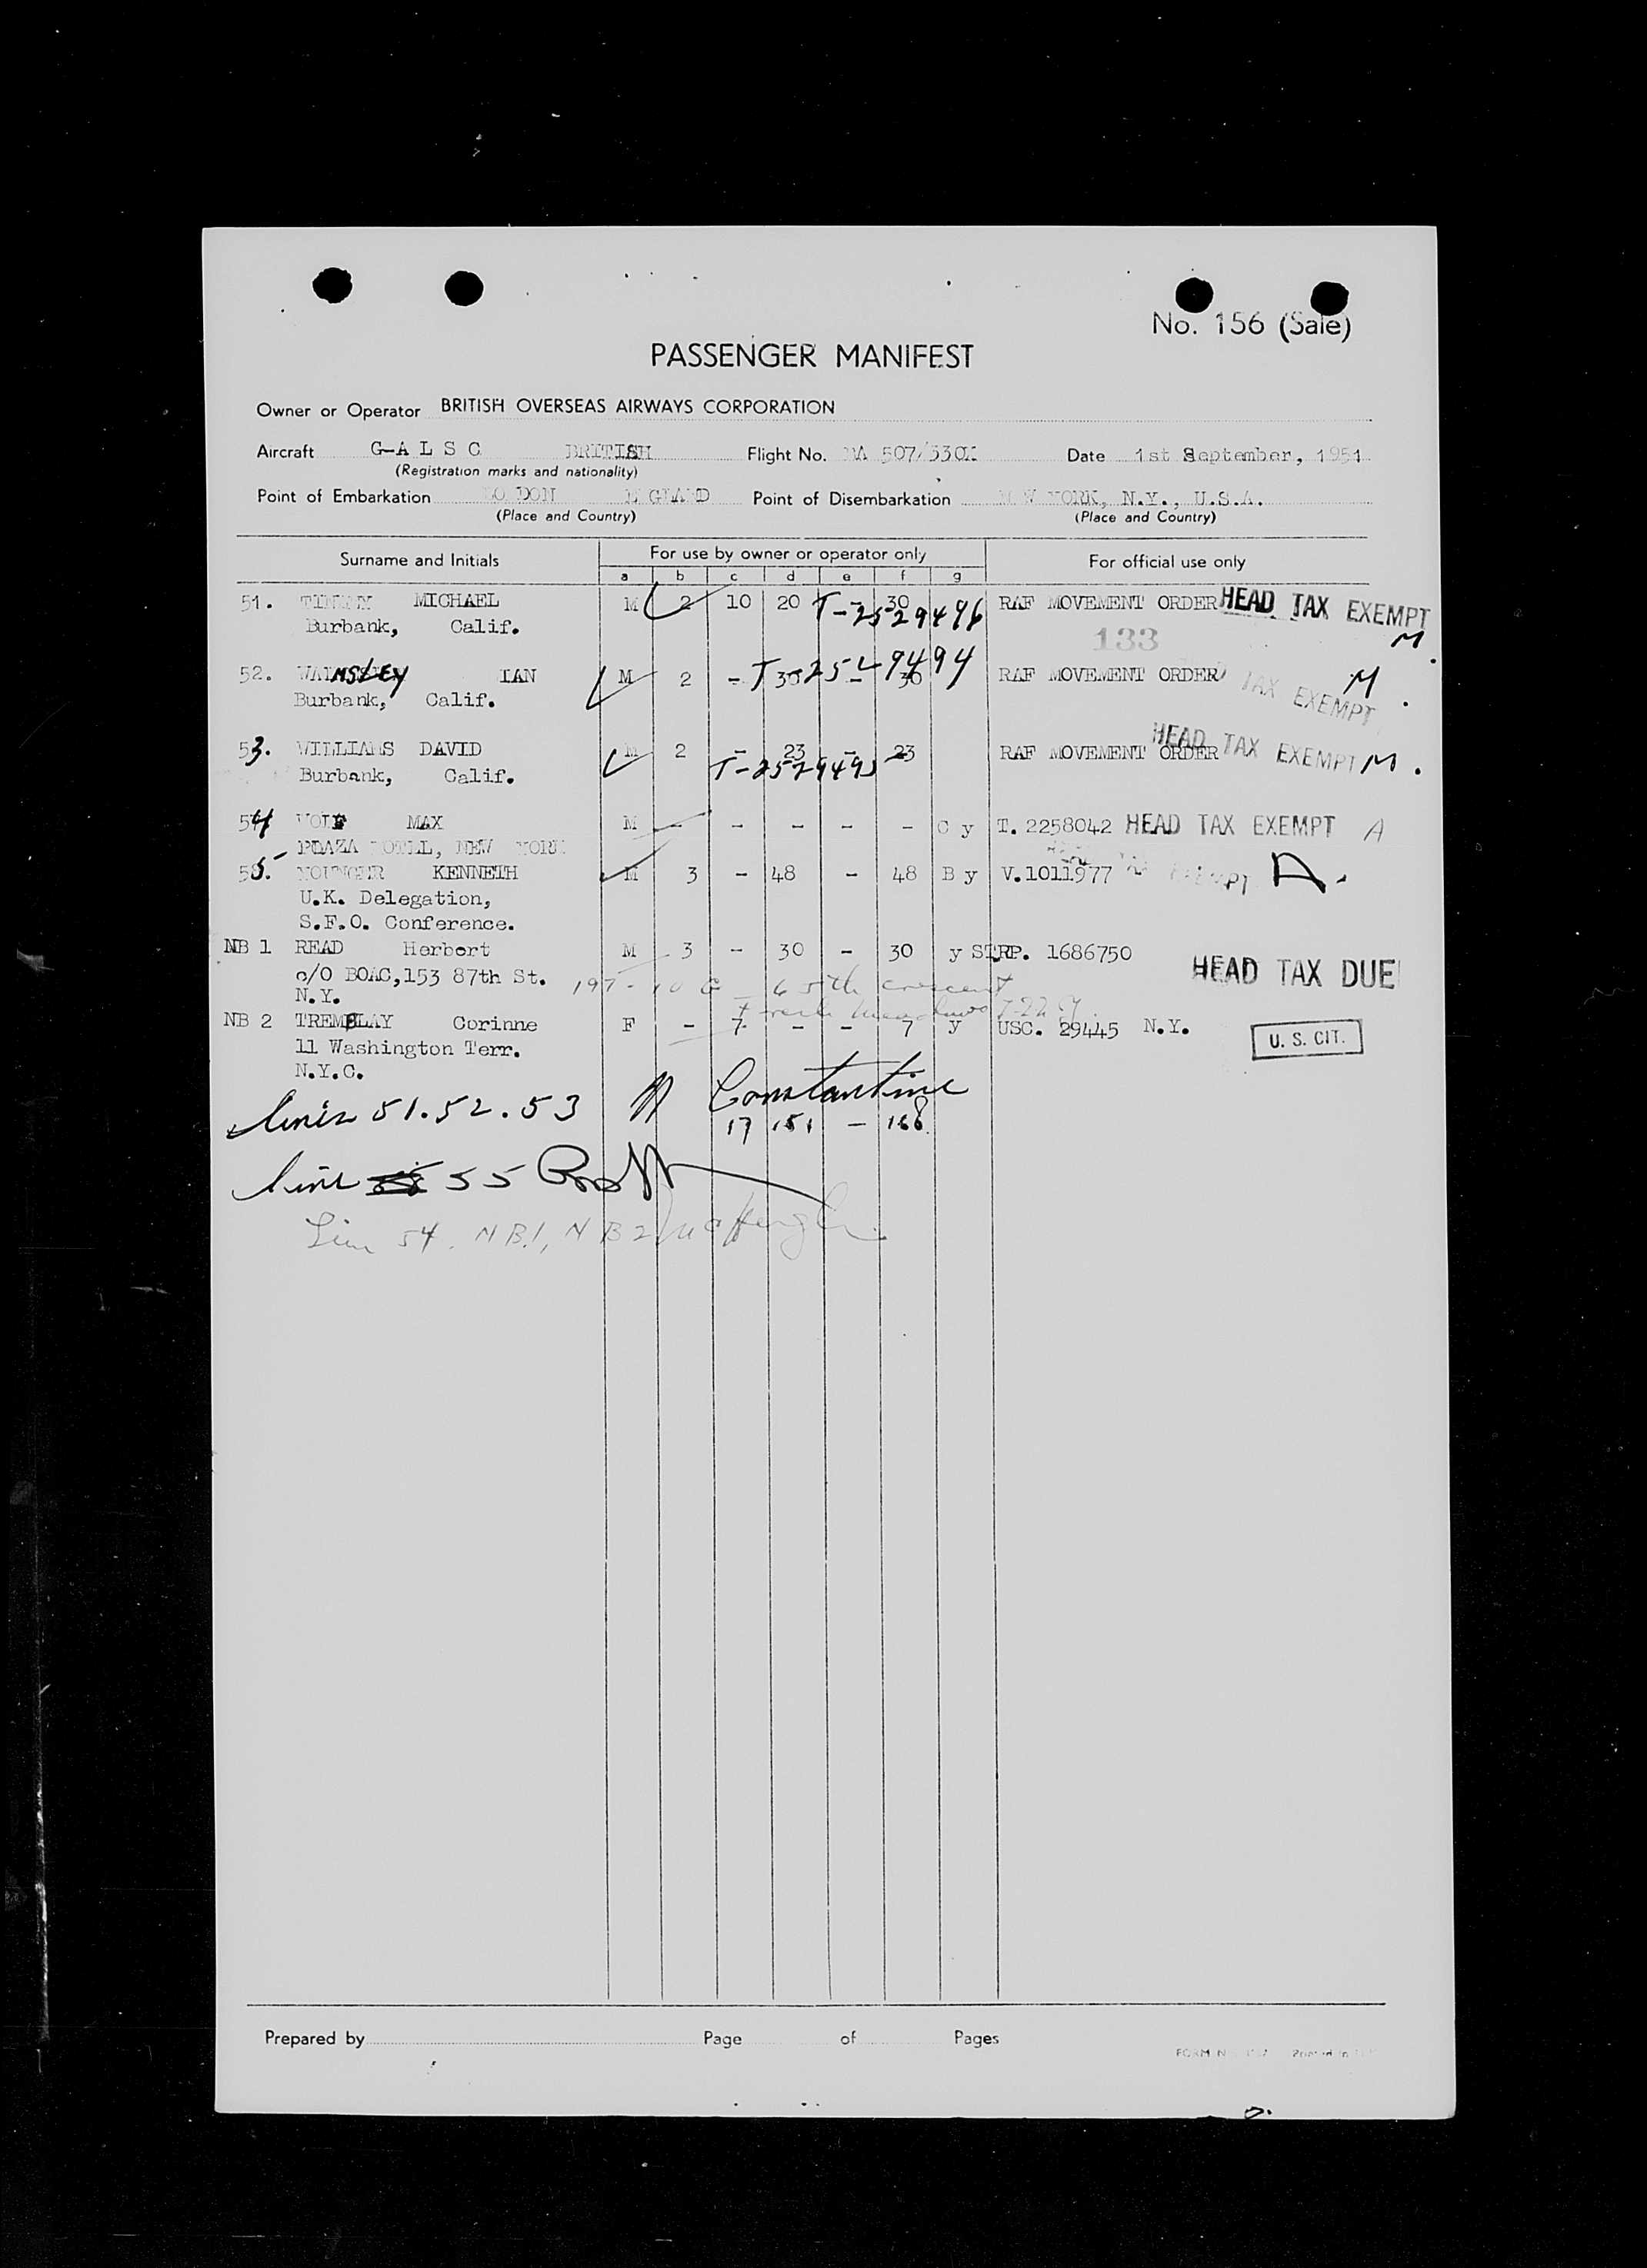 No. 156 (Sale)
PASSENGER MANIFEST
Owner or Operator BRITISH OVERSEAS AIRWAYS CORPORATION
Aircraft G-A L S C BRITISH Flight No. BA 507/330X Date 1st September, 1951
(Registration marks and nationality)
Point of Embarkation LONDON ENGLAND Point of Disembarkation NEW YORK, N.Y., U.S.A.
(Place and Country) (Place and Country)
Surname and Initials For use by owner or operator only For official use only
a b c d e f g
51. MICHAEL M 2 10 20 - 30 RAF MOVEMENT ORDER HEAD TAX EXEMPT
Burbank, Calif. T-2529496 133 M.
52. WALMSLEY IAN M 2 - 30 - 30 T-2529494 RAF MOVEMENT ORDER TAX EXEMPT M.
Burbank, Calif.
53. WILLIAMS DAVID M 2 - 23 - 23 RAF MOVEMENT ORDER HEAD TAX EXEMPT M.
Burbank, Calif. T-2529495
54 WOLF MAX M - - - - - C y T. 2258042 HEAD TAX EXEMPT A
PLAZA HOTEL, NEW YORK
55. YOUNGER KENNETH M 3 - 48 - 48 B y V.1011977 EXEMPT A.
U.K. Delegation,
S.F.O. Conference.
NB 1 READ Herbert M 3 - 30 - 30 y STRP. 1686750 HEAD TAX DUE
c/O BOAC,153 87th St. 197-10 C 65th Crescent
N.Y. Fresh Meadows
NB 2 TREMBLAY Corinne F - 7 - - 7 y USC. 29445 N.Y. U. S. CIT.
11 Washington Terr.
N.Y.C.
lines 51.52.53 Constantine
17 151 - 168
line 55
Line 54. NB1, NB2
Prepared by Page of Pages